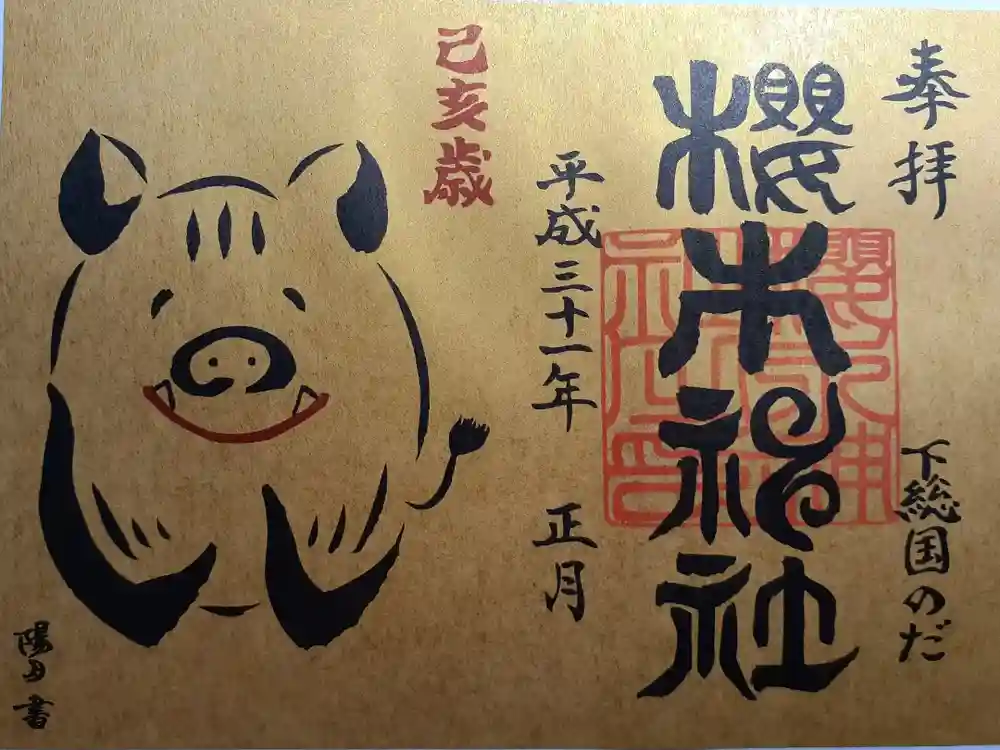 奉拝
下総国のだ
櫻木神社
平成三十一年 正月
己亥歳
書